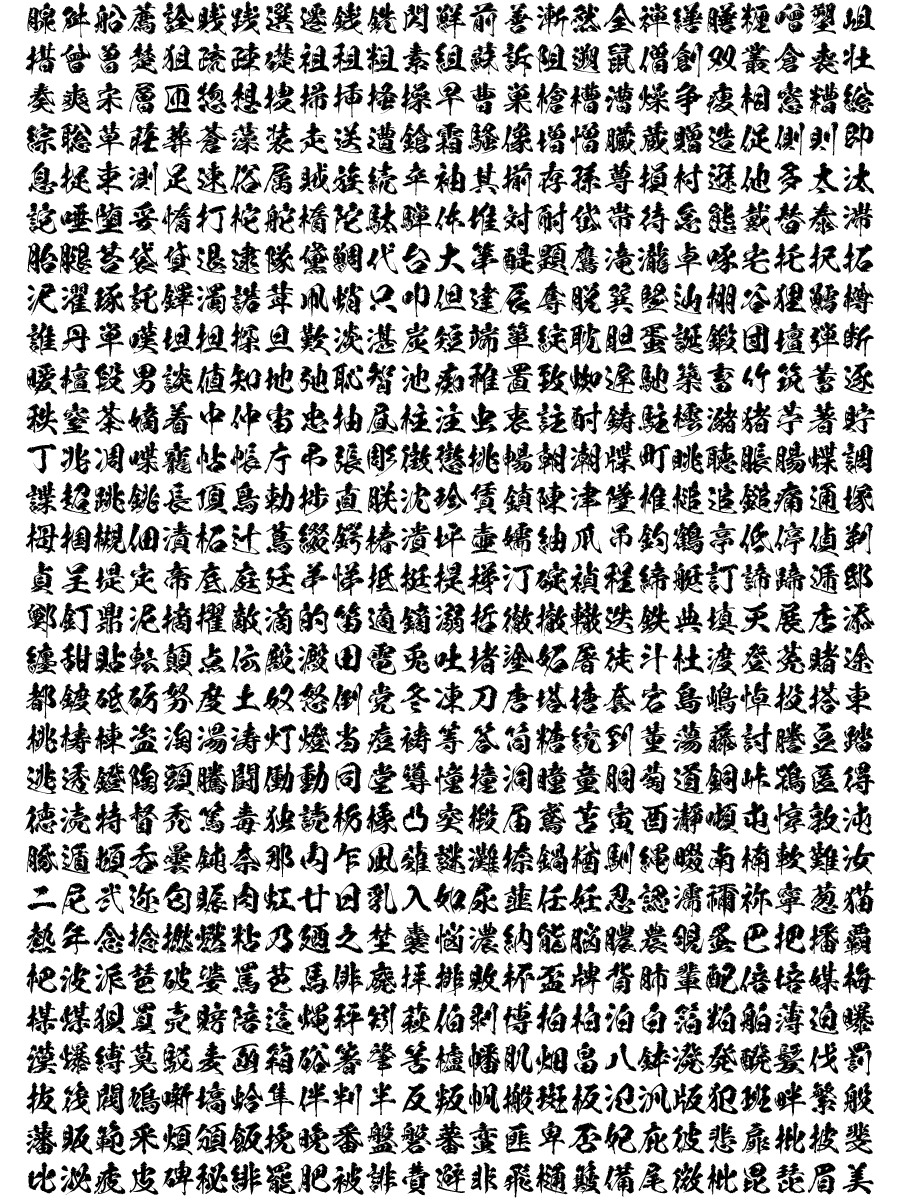 腺舛船薦詮賎践選遷銭銑閃鮮前善漸然全禅繕膳糎噌塑岨
措曾曽楚狙疏疎礎祖租粗素組蘇訴阻遡鼠僧創双叢倉喪壮
奏爽宋層匝惣想捜掃挿掻操早曹巣槍槽漕燥争痩相窓糟総
綜聡草荘葬蒼藻装走送遭鎗霜騒像増憎臓蔵贈造促側則即
息捉束測足速俗属賊族続卒袖其揃存孫尊損村遜他多太汰
詑唾堕妥惰打柁舵楕陀駄騨体堆対耐岱帯待怠態戴替泰滞
胎腿苔袋貸退逮隊黛鯛代台大第醍題鷹滝瀧卓啄宅托択拓
沢濯琢託鐸濁諾茸凧蛸只叩但達辰奪脱巽竪辿棚谷狸鱈樽
誰丹単嘆坦担探旦歎淡湛炭短端箪綻耽胆蛋誕鍛団壇弾断
暖檀段男談値知地弛恥智池痴稚置致蜘遅馳築畜竹筑蓄逐
秩窒茶嫡着中仲宙忠抽昼柱注虫衷註酎鋳駐樗瀦猪苧著貯
丁兆凋喋寵帖帳庁弔張彫徴懲挑暢朝潮牒町眺聴脹腸蝶調
諜超跳銚長頂鳥勅捗直朕沈珍賃鎮陳津墜椎槌追鎚痛通塚
栂掴槻佃漬柘辻蔦綴鍔椿潰坪壷嬬紬爪吊釣鶴亭低停偵剃
貞呈堤定帝底庭廷弟悌抵挺提梯汀碇禎程締艇訂諦蹄逓邸
鄭釘鼎泥摘擢敵滴的笛適鏑溺哲徹撤轍迭鉄典填天展店添
纏甜貼転顛点伝殿澱田電兎吐堵塗妬屠徒斗杜渡登菟賭途
都鍍砥砺努度土奴怒倒党冬凍刀唐塔塘套宕島嶋悼投搭東
桃梼棟盗淘湯涛灯燈当痘祷等答筒糖統到董蕩藤討謄豆踏
逃透鐙陶頭騰闘働動同堂導憧撞洞瞳童胴萄道銅峠鴇匿得
徳涜特督禿篤毒独読栃橡凸突椴届鳶苫寅酉瀞噸屯惇敦沌
豚遁頓呑曇鈍奈那内乍凪薙謎灘捺鍋楢馴縄畷南楠軟難汝
二尼弐迩匂賑肉虹廿日乳入如尿韮任妊忍認濡禰祢寧葱猫
熱年念捻撚燃粘乃廼之埜嚢悩濃納能脳膿農覗蚤巴把播覇
杷波派琶破婆罵芭馬俳廃拝排敗杯盃牌背肺輩配倍培媒梅
楳煤狽買売賠陪這蝿秤矧萩伯剥博拍柏泊白箔粕舶薄迫曝
漠爆縛莫駁麦函箱硲箸肇筈櫨幡肌畑畠八鉢溌発醗髪伐罰
抜筏閥鳩噺塙蛤隼伴判半反叛帆搬斑板氾汎版犯班畔繁般
藩販範釆煩頒飯挽晩番盤磐蕃蛮匪卑否妃庇彼悲扉批披斐
比泌疲皮碑秘緋罷肥被誹費避非飛樋簸備尾微枇毘琵眉美